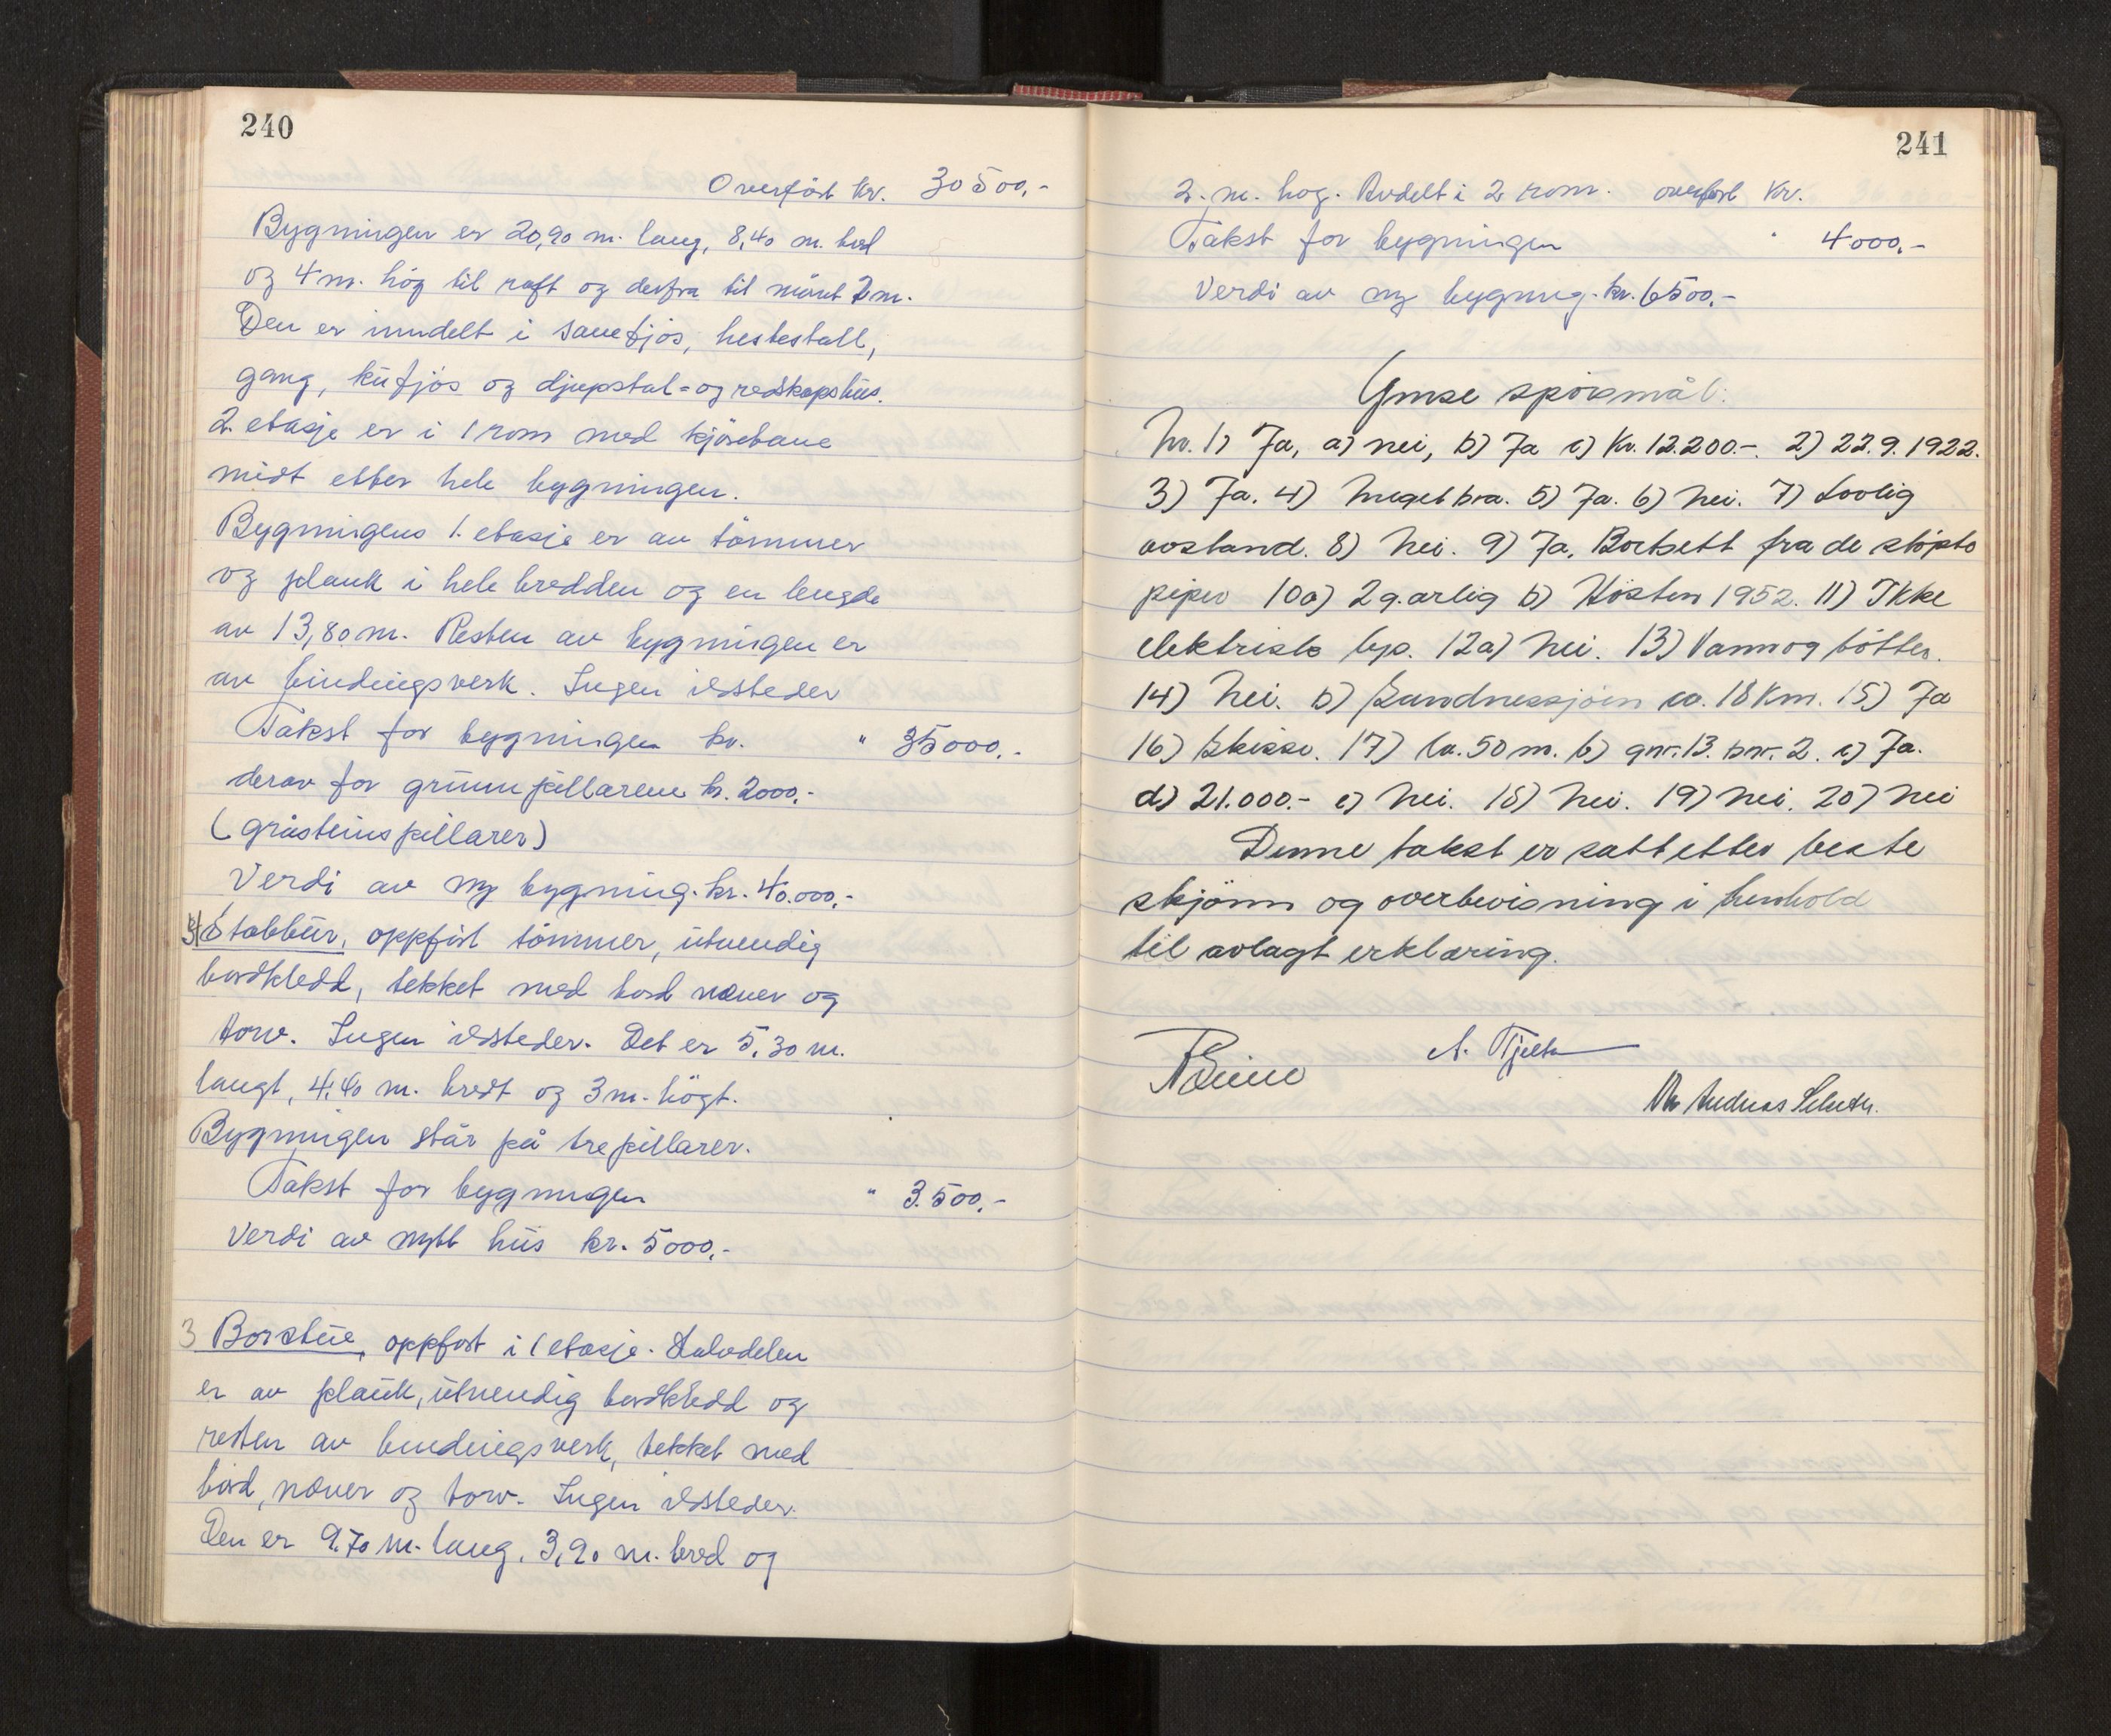 240
Overfört kr. 30500,-
Bygningen er 20,90 m. lang, 8,40 m. bred
og 4 m. hög til raft og derfra til mönet 2 m.
Den er inndelt i sauefjös, hestestall,
gang, kufjös og djupstal- og redskapshus.
2. etasje er i 1 rom med kjörebane
midt etter hele bygningen.
Bygningens 1. etasje er av tömmer
og plank i hele bredden og en lengde
av 13,80 m. Resten av bygningen er
av bindingsverk. Ingen ildsteder
Takst for bygningen kr. " 35000,-
derav for grunnpillarene kr. 2000,-
(gråsteinspillarer)
Verdi av ny bygning. kr. 40.000,-
Stabbur, oppfört tömmer, utvendig
bordkledd, tekket med bord never og
torv. Ingen ildsteder. Det er 5,30 m.
langt, 4,40 m. bredt og 3 m. högt.
Bygningen står på trepillarer.
Takst for bygningen " 3.500,-
Verdi av nytt hus kr. 5000,-
3 Borstue, oppfört i 1 etasje. Halvdelen
er av plank, utvendig bordkledd og
resten av bindingsverk, tekket med
bord, never og torv. Ingen ildsteder.
Den er 9,70 m. lang, 3,90 m. bred og
241
2. m. hög. Avdelt i 2 rom. overfört kr.
Takst for bygningen " 4000,-
Verdi av ny bygning. kr. 6500,-
Ymse spörsmål:
Nr. 1) Ja, a) nei, b) Ja c) Kr. 12.200.-. 2) 22.9.1922.
3) Ja. 4) Meget bra. 5) Ja. 6) Nei. 7) Lovlig
avstand. 8) Nei. 9) Ja, Bortsett fra de stöpte
piper 10a) 2 g. årlig b) Hösten 1952. 11) Ikke
elektrisk lys. 12a) Nei. 13) Vann og bötter.
14) Nei. b) Sandnessjöen ca. 18 km. 15) Ja
16) Skisse. 17) Ca. 50 m. b) gnr. 13. bnr. 2. c) Ja.
d) 21.000.- e) Nei. 18) Nei. 19) Nei. 20) Nei
Denne takst er satt etter beste
skjönn og overbevisning i henhold
til avlagt erklæring.
A. Tjelta
Andreas